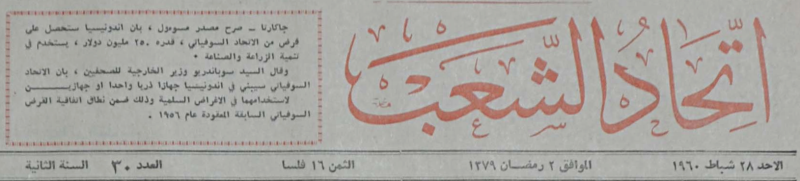 اتحاد الشعب
جاكارتا ــ صرح مصدر مسوءول ، بان اندونيسيا ستحصل على
قرض من الاتحاد السوفياتي ، قدره ٢٥٠ مليون دولار ، يستخدم في
تنمية الزراعة والصناعة •
وقال السيد سوباندريو وزير الخارجية للصحفيين ، بان الاتحاد
السوفياتي سيبني في اندونيسيا جهازا ذريا واحدا او جهازيـــن
لاستخدامهما في الاغراض السلمية وذلك ضمن نطاق اتفاقية القرض
السوفياتي السابقة المعقودة عام ١٩٥٦ •
الاحد ٢٨ شباط ١٩٦٠ الموافق ٢ رمضان ١٣٧٩ الثمن ١٦ فلسا العدد ٣٠ السنة الثانية